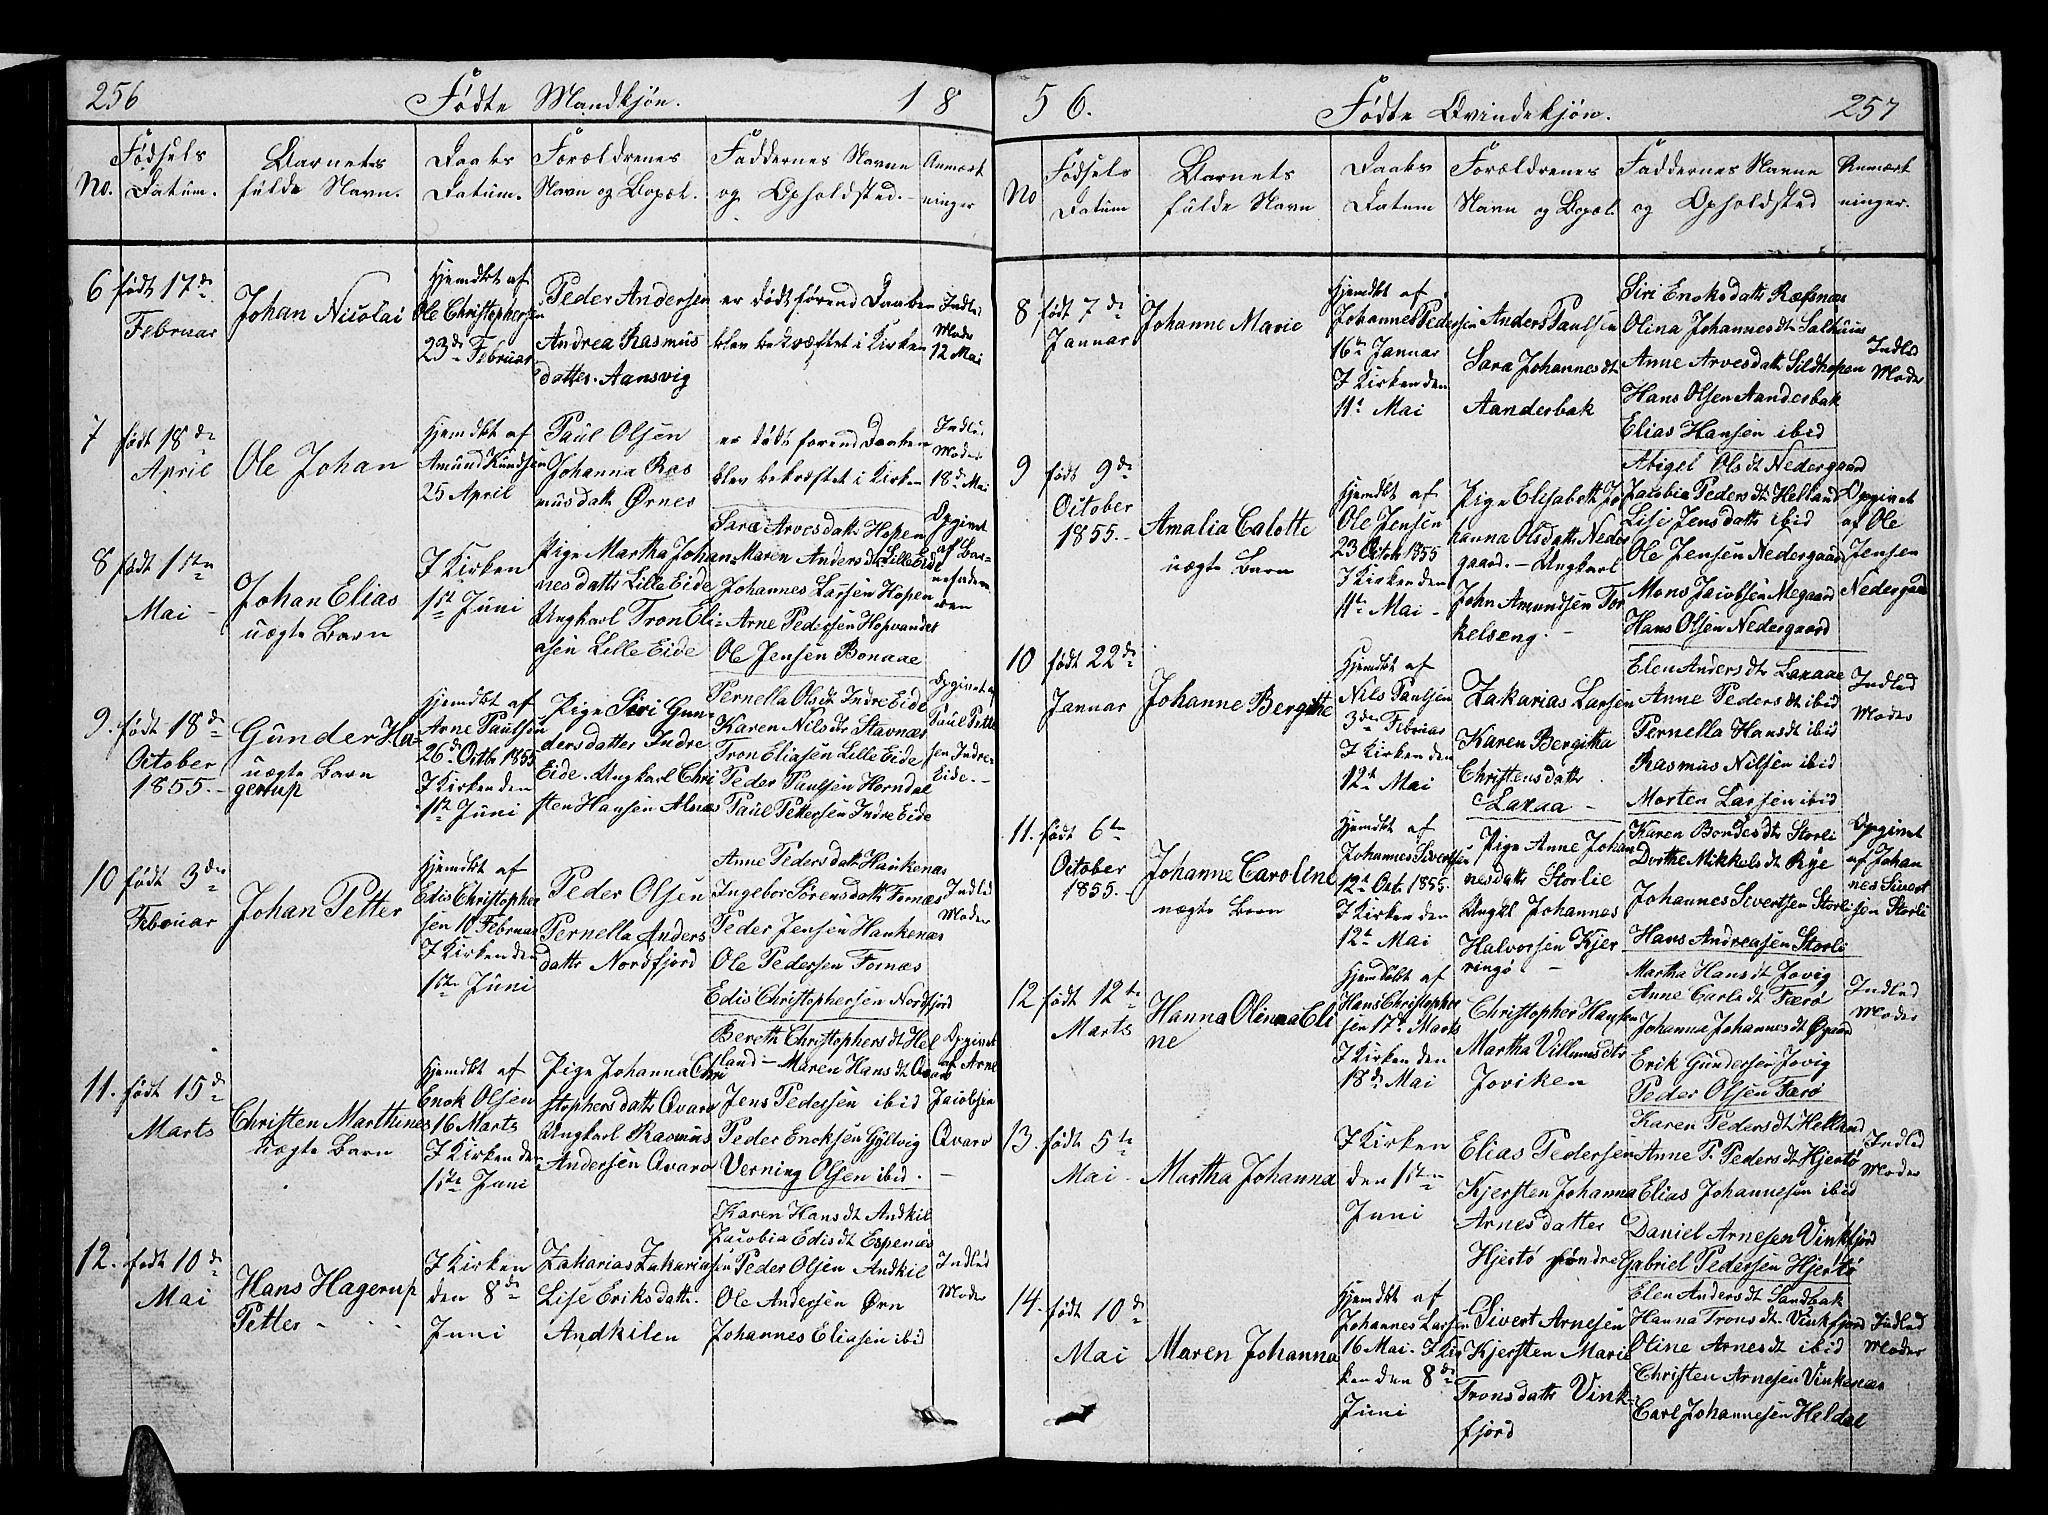 256
Fødte Mandkjøn.
1 8
No.
Fødsels
Datum.
Barnets
fulde Navn.
Daabs
Datum.
Forældrenes
Navn og Bopæl.
Faddernes Navne
og Opholdsted.
Anmærk
ninger
6
født 17de
Februar
Johan Nicolai
Hjemdbt af
Ole Christophersen
23de Februar
Peder Andersen
Andrea Rasmus
datter. Aansvig
er dødt førend Daaben
blev bekræftet i Kirken
Indled
Moder
12 Mai
7
født 18de
April
Ole Johan
Hjemdbt af
Amund Knudsen
25 April
Paul Olsen
Johanna Ras
musdatt Ørnes
er dødt førend Daaben
blev bekræftet i Kirken
Indled
Moder
18de Mai
8
født 1ste
Mai
Johan Elias
uægte Barn
I Kirken
1ste Juni
Pige Martha Johan
nesdattr Lille Eide
Ungkarl Tron Eli
asen Lille Eide
Sara Arvesdattr Hopen
Maren Andersdt Lille Eide
Johannes Larsen Hopen
Arne Pedersen Hopvandet
Ole Jensen Bonaae
Opgivet
af Bar-
nefader
en
9.
født 18de
October
1855.
Gunder Ha-
gerup
uægte Barn
Hjemdbt af
Arne Paulsen
26de Octbr 1855
I Kirken den
1ste Juni
Pige Siri Gun-
dersdatter Indre
Eide. Ungkarl Chri
sten Hansen Alnæs
Pernella Olsdt Indre Eide
Karen Nilsdtr Stavnæs
Tron Eliasen Lille Eide
Peder Paulsen Horndal
Paul Pettersen Indre Eide
Opgivet af
Paul Petter
sen Indre
Eide.
10
født 3die
Februar
Johan Petter
Hjemdbt af
Edis Christopher
sen 10 Februar
I Kirken den
1ste Juni
Peder Olsen
Pernella Anders
dattr Nordfjord
Anne Pedersdattr Haukenæs
Ingebor Sørensdattr Fornæs
Peder Jensen Haukenæs
Ole Pedersen Fornæs
Edis Christophersen Nordfjord
Indled
Moder
11.
født 15de
Marts
Christen Marthines
uægte Barn
Hjemdbt af
Enok Olsen
16 Marts
I Kirken den
1ste Juni
Pige Johanna Chri
stophersdattr Qvarv
Ungkarl Rasmus
Andersen Qvarv
Bereth Christophersdt Hel
land - Maren Hansdt Qvarv
Jens Pedersen ibid
Peder Enoksen Gyltvig
Verning Olsen ibid.
Opgivet
af Arne
Jacobsen
Qvarv
12.
født 10de
Mai
Hans Hagerup
Petter
I Kirken
den 8de
Juni
Zakarias Zakariasen
Lise Eriksdattr
Andkilen
Karen Hansdt Andkil
Jacobia Edisdt Espenæs
Peder Olsen Andkil
Ole Andersen Ørn
Johannes Eliasen ibid
Indled
Moder
5 6.
Fødte Qvindekjøn.
257
No
Fødsels
Datum
Barnets
fulde Navn
Daabs
Datum
Forældrenes
Navn og Bopæl.
Faddernes Navne
og Opholdsted
Anmærk
ninger.
8
født 7de
Januar
Johanne Marie
Hjemdbt af
Johannes Pedersen
16de Januar
I Kirken den
11te Mai
Anders Paulsen
Sara Johannesdt
Aanderbak
Siri Enoksdattr Ræfsnæs
Olina Johannesdt Salthuus
Anne Arvesdattr Sildhopen
Hans Olsen Aanderbak
Elias Hansen ibid
Indled
Moder
9
født 9de
October
1855.
Amalia Calotte
uægte Barn
Hjemdbt af
Ole Jensen
23 Octbr 1855
I Kirken den
11te Mai
Pige Elisabeth Jo
hanna Olsdattr Neder
gaard. - Ungkarl
John Amundsen Tor
kelseng.
Abigel Olsdt Nedergaard
Jacobia Pedersdt Helland
Lise Jensdattr ibid
Ole Jensen Nedergaard
Mons Jacobsen Megaard
Hans Olsen Nedergaard
Opgivet
af Ole
Jensen
Nedergaard
10
født 22de
Januar
Johanne Bergithe
Hjemdbt af
Nils Paulsen
3die Februar
I Kirken den
12te Mai
Zakarias Larsen
Karen Bergitha
Christensdattr
Laxaa
Elen Andersdt Laxaae
Anne Pedersdt ibid
Pernella Hansdt ibid
Rasmus Nilsen ibid
Morten Larsen ibid
Indled
Moder
11.
født 6te
October
1855.
Johanne Caroline
uægte Barn
Hjemdbt af
Johannes Sivertsen
12te Oct. 1855
I Kirken den
12te Mai
Pige Anne Johan
nesdattr Storlie
Ungkl Johannes
Halvorsen Kjer
ringø
Karen Bondesdtr Storli
Dorthe Mikkelsdt Rye
Johannes Sivertsen Storli
Hans Andreasen Storli
Opgivet
af Johan
nes Sivert
sen Storli
12
født 12te
Marts
Hanna Olinna Eli
ne
Hjemdøbt af
Hans Christopher
sen 17de Marts
I Kirken den
18de Mai
Christopher Hansen
Martha Villumsdtr
Joviken
Martha Hansdt Jovig
Anne Carlsdt Færø
Johanna Johannesdt Øgaard
Erik Gundersen Jovig
Peder Olsen Færø
Indled
Moder
13.
født 5te
Mai
Martha Johanna
I Kirken
den 1ste
Juni
Elias Pedersen
Kjersten Johanna
Arnesdatter
Hjertø søndre
Karen Pedersdt Helland
Anne P. Pedersdt Hjertø
Elias Johannesen ibid
Daniel Arnesen Vinkfjord
Gabriel Pedersen Hjertø
Indled
Moder
14.
født 10de
Mai
Maren Johanna
Hjemdbt af
Johannes Larsen
16 Mai. I Kir
ken den 8de
Juni
Sivert Arnesen
Kjersten Marie
Tronsdattr Vink-
fjord
Elen Andersdt Sandbak
Hanna Tronsdt Vinkfjord
Oline Arnesdt ibid
Christen Arnesen Vinkenæs
Carl Johannesen Heldal
Indled
Moder